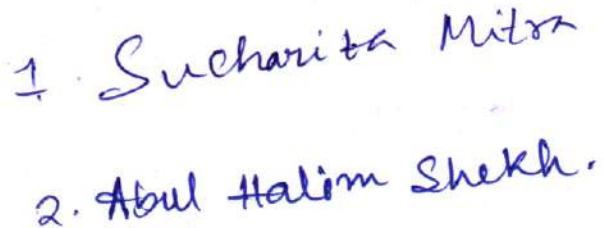 1. Sucharita Mitra
2. Abul Halim Shekh.